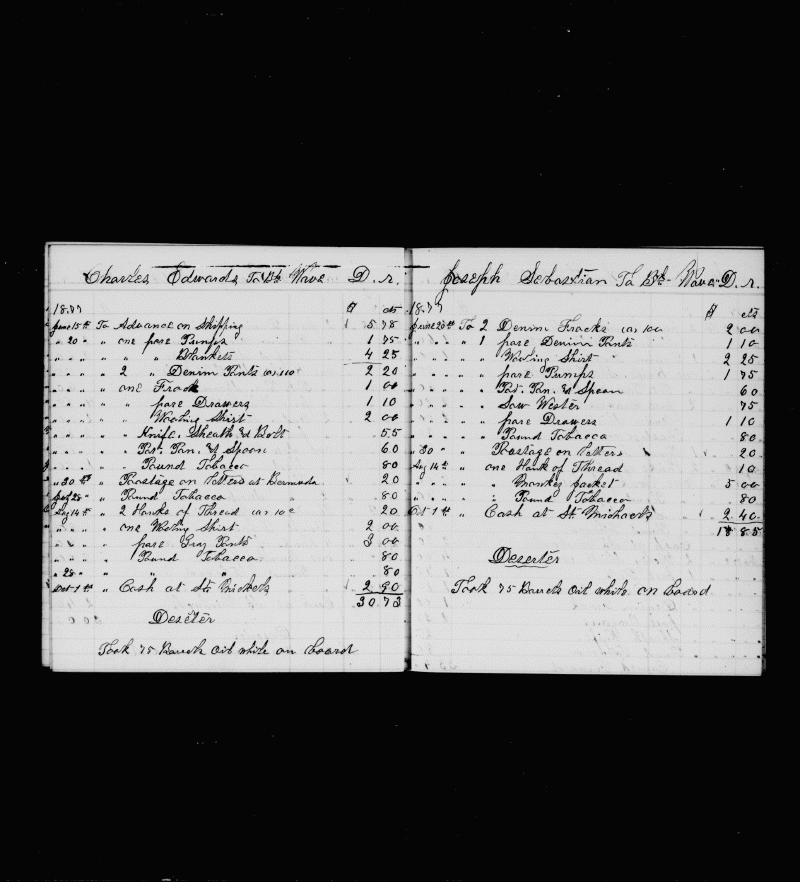 Charles Edwards To Bk Wave D. r.
1877 $ cts
June 15th To Advance on Shipping 5 78
" 20 " " one pare Pumps 1 75
" " " " " " Blankets 4 25
" " " " 2 " Denim Pants (a) 110 2 20
" " " " one Frock 1 00
" " " " " pare Drawers 1 10
" " " " " Wooling Shirt 2 00
" " " " " Knife, Sheath & Belt 55
" " " " " Pot. Pan. & Spoon 60
" " " " " Pound Tobacco 80
" 30th " Poostage on letters at Bermuda 20
" 28 " " Pound Tobacco " 80
Aug 14th " 2 Hanks of Thread (a) 10c 20
" " " " one Wooling Shirt 2 00
" " " " " pare Gray Pants 3 00
" " " " " Pound Tobacco 80
" 28 " " " " 80
Oct 1th " Cash at St. Mickels 2 90
30 73
Deseter
Took 75 Barrels Oil while on board
Joseph Sebastian To Bk Wave D. r.
1877 $ cts
June 20th To 2 Denim Frocks (a) 100 2 00
" " " " 1 pare Denim Pants 1 10
" " " " " Wooling Shirt 2 25
" " " " " pare Pumps 1 75
" " " " " Pot. Pan. & Spoon 60
" " " " " Sow Wester 75
" " " " " pare Drawers 1 10
" " " " " Pound Tobacco 80
" 30 " " Poostage on letters 20
Aug 14th " one Hank of Thread 10
" " " " " Monkey Jacket 5 00
" " " " " Pound Tobacco 80
Oct 1th " Cash at St. Michaels 2 40
18 85
Deserter
Took 75 Barrels Oil while on board